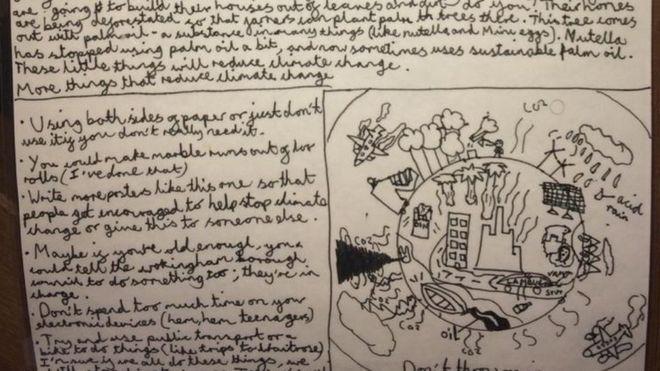 are going to build their houses out of leaves and dirt do you? Their homes
are being deforested so that farmers can plant palm trees there. This tree comes
out with palm oil - a substance in many things (like nutella and Mini eggs). Nutella
has stopped using palm oil a bit, and now sometimes uses sustainable palm oil.
These little things will reduce climate change.
More things that reduce climate change
• Using both sides of paper or just don't
use it if you don't really need it.
• You could make marble runs out of loo
rolls (I've done that)
• Write more posters like this one so that
people get encouraged to help stop climate
change or give this to someone else.
• Maybe if you're old enough, you
could tell the wokingham borough
council to do something too; they're in
charge.
• Don't spend too much time on your
electronic devices (hem, hem teenagers)
• Try and use public transport or a
bike to do things (like trips to Waitrose)
I'm sure if we all do these things, we
will
CO2
acid
rain
CO2
BIN
CO2
OIL
CO2
Don't throw